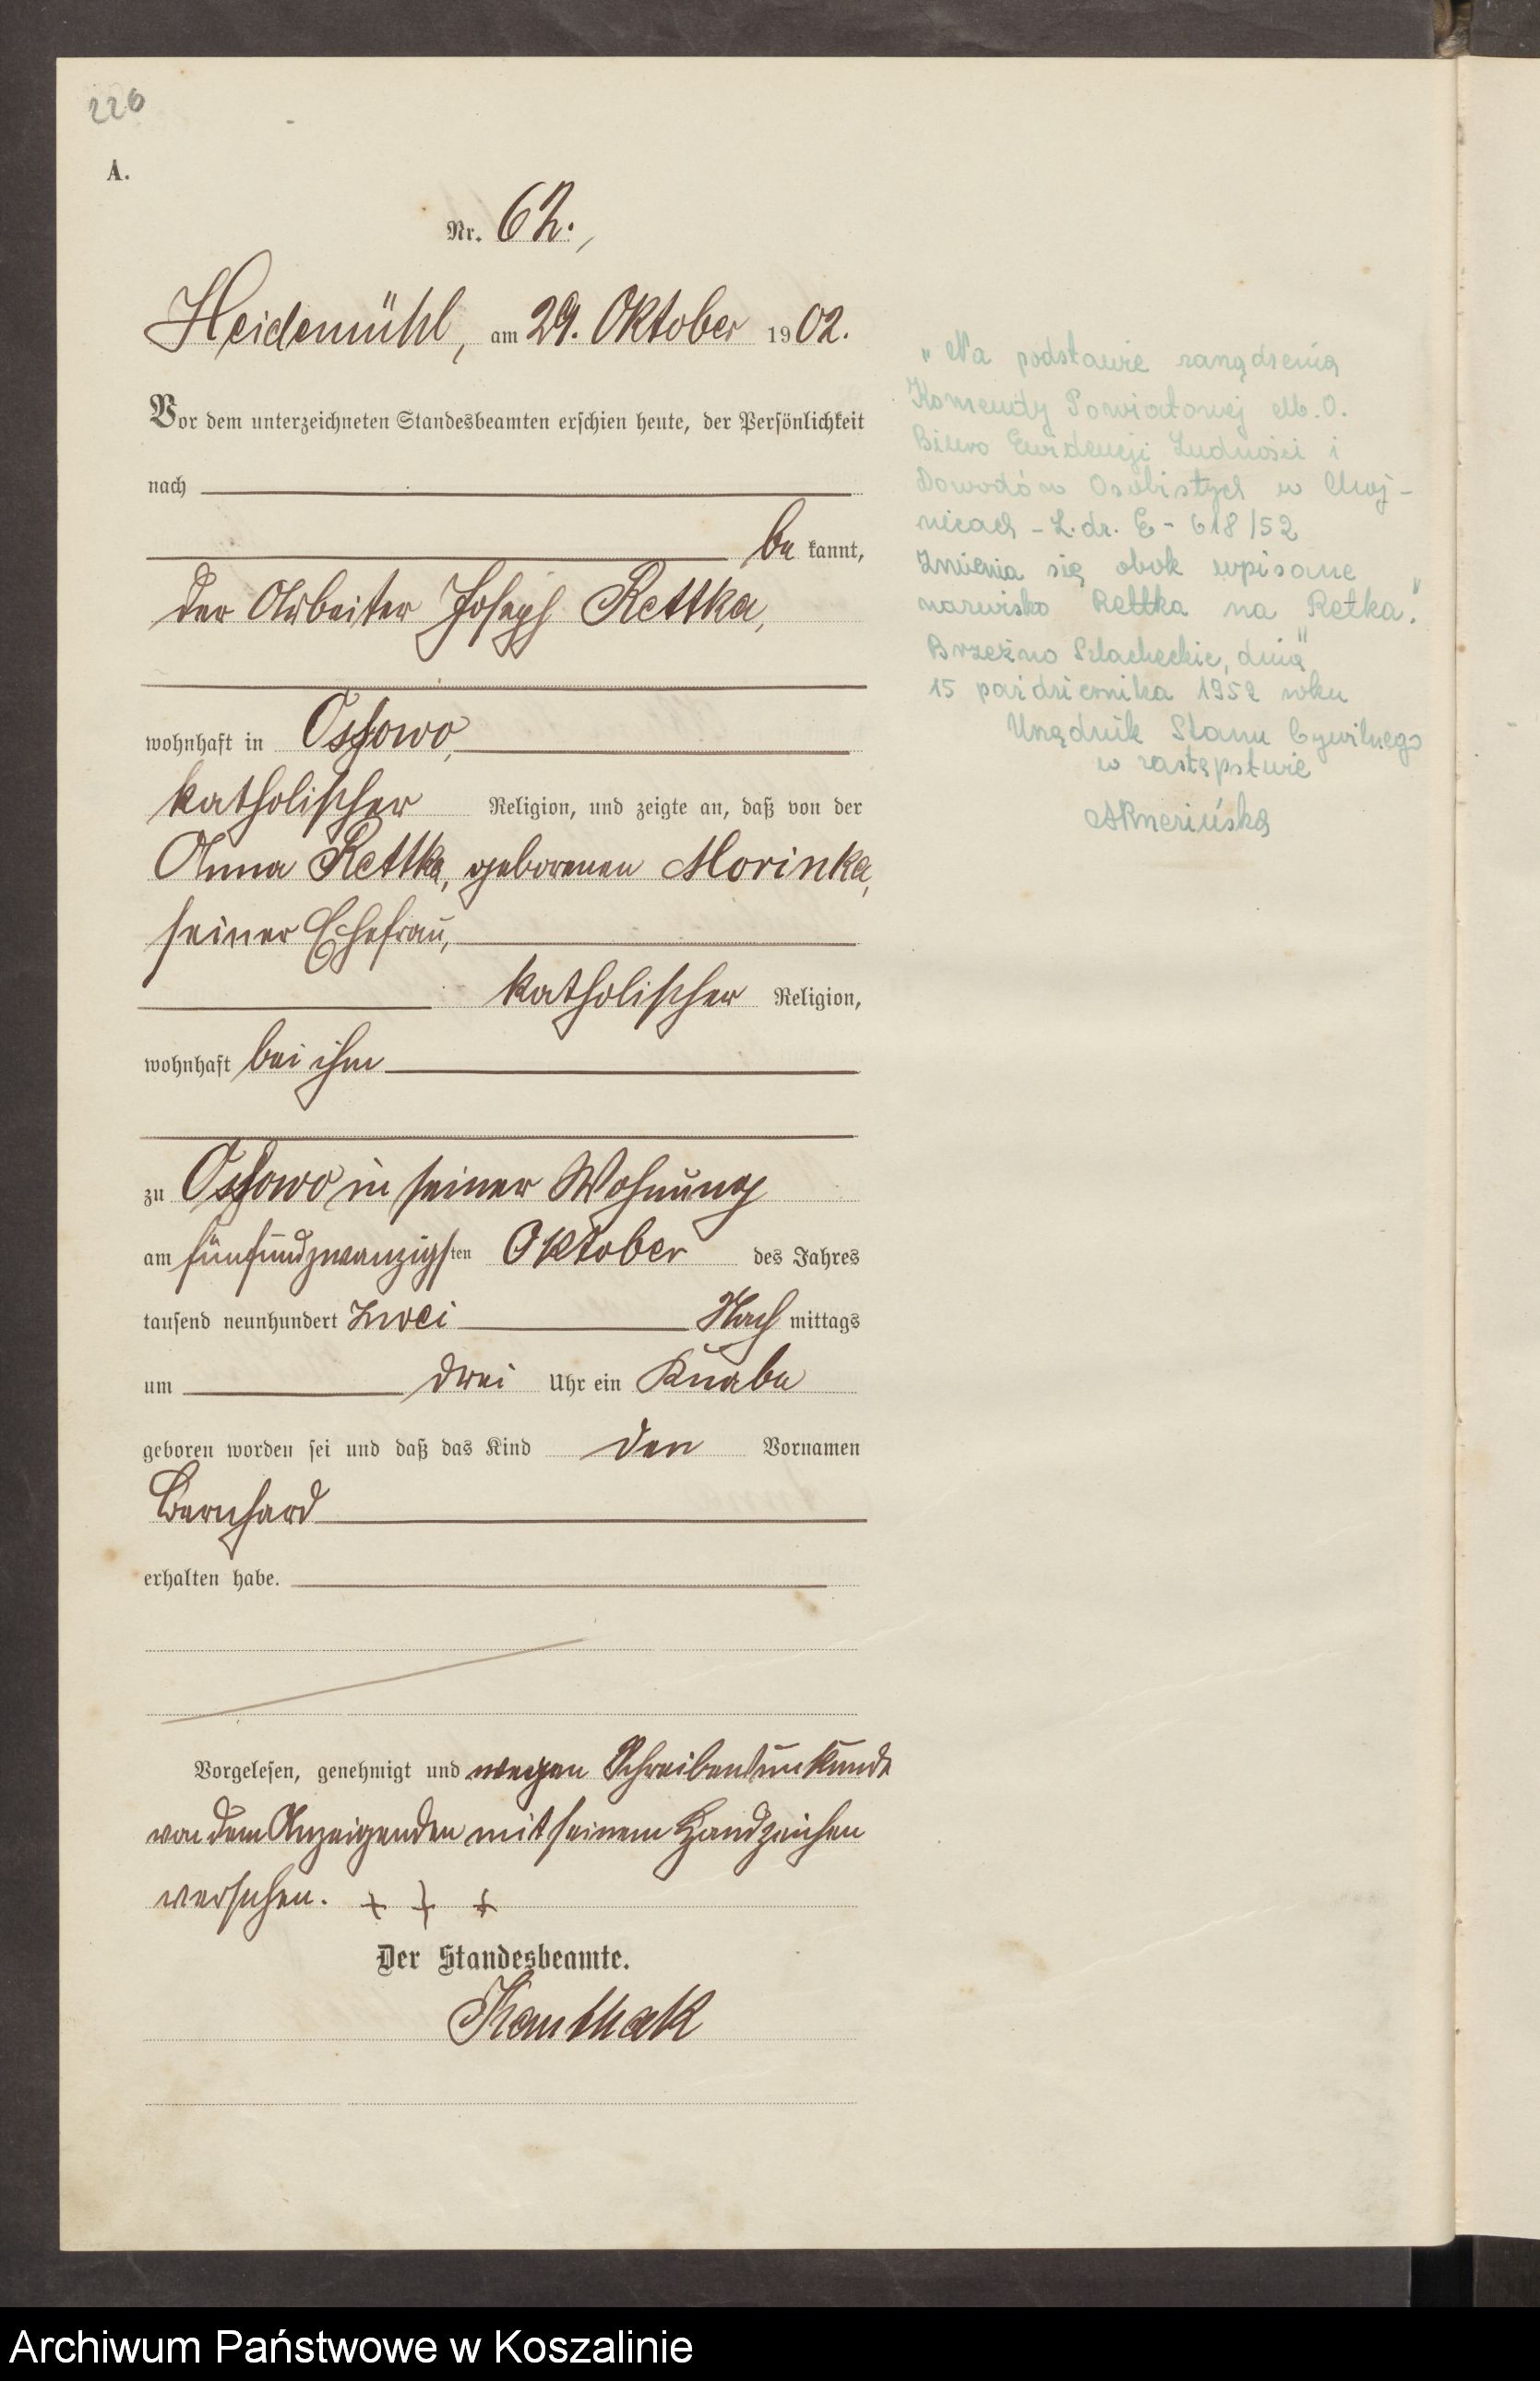 226
A.
Nr. 62.
Heidemühl, am 29. Oktober 1902.
Vor dem unterzeichneten Standesbeamten erschien heute, der Persönlichkeit
nach
be kannt,
der Arbeiter Joseph Rettka,
wohnhaft in Ossowo,
katholischer Religion, und zeigte an, daß von der
Anna Rettka, geborenen Morinka,
seiner Ehefrau,
katholischer Religion,
wohnhaft bei ihm
zu Ossowo in seiner Wohnung
am fünfundzwanzigsten Oktober des Jahres
tausend neunhundert zwei Nach mittags
um drei Uhr ein Knabe
geboren worden sei und daß das Kind den Vornamen
Bernhard
erhalten habe.
Vorgelesen, genehmigt und wegen Schreibensunkunde
von dem Anzeigenden mit seinem Handzeichen
versehen. + + +
Der Standesbeamte.
"Na podstawie zarządzenia
Komendy Powiatowej M.O.
Biuro Ewidencji Ludności i
Dowodów Osobistych w Choj-
nicach - L.dz. E - 618/52
Zmienia się obok wpisane
nazwisko Rettka na Retka."
Brzeźno Szlacheckie, dnia
15 października 1952 roku
Urzędnik Stanu Cywilnego
w zastępstwie
Archiwum Państwowe w Koszalinie